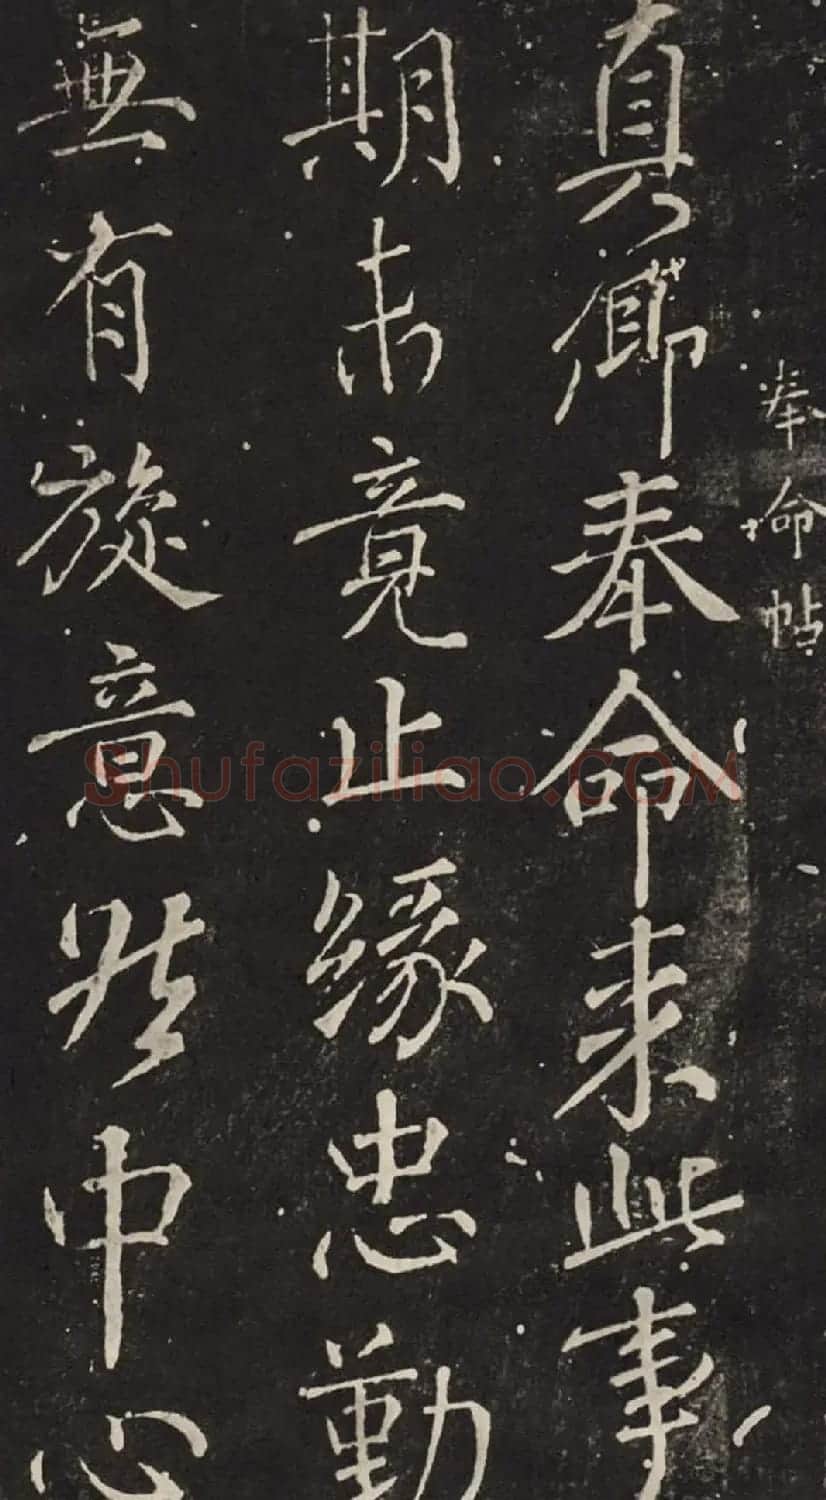 奉命帖
真卿奉命来此事
期未竟止緣忠勤
無有旋意然中心
Shufaziliao.COM